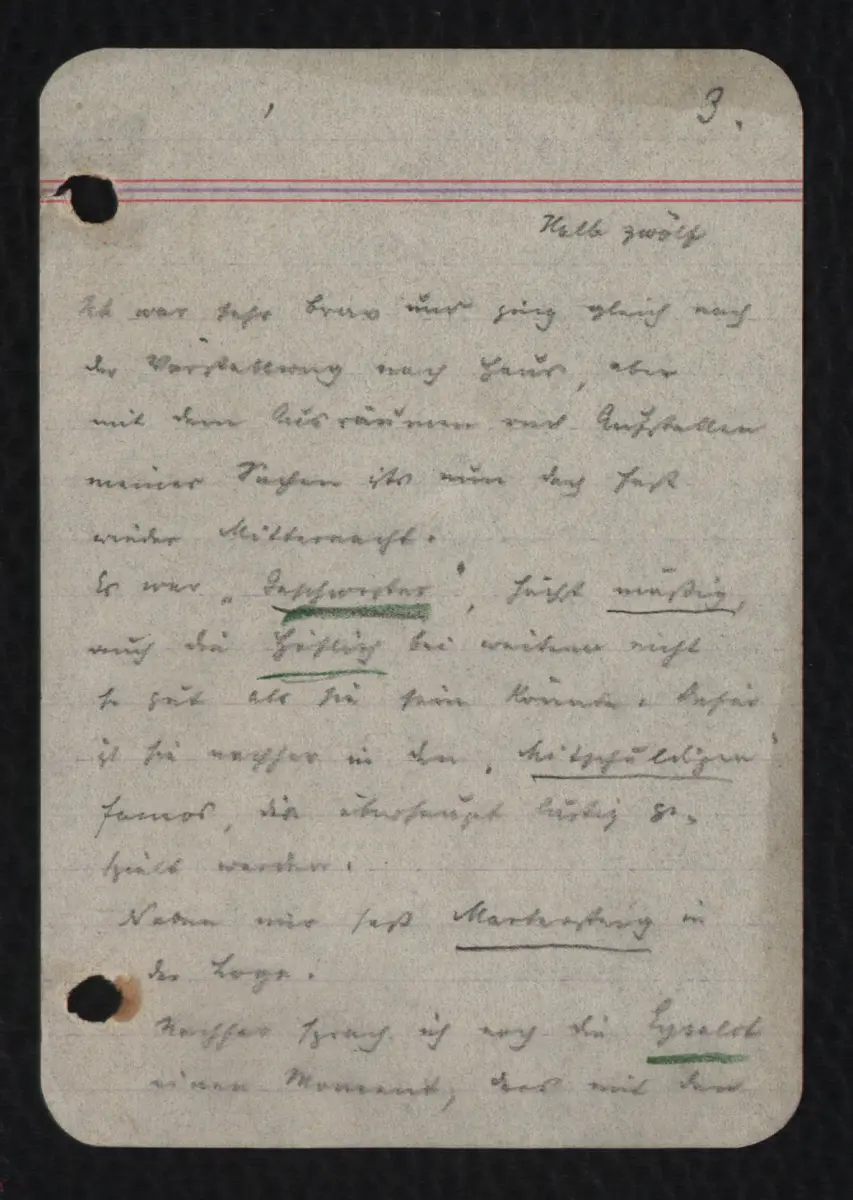 3.
Halb zwölf
Ich war sehr brav und ging gleich nach
der Vorstellung nach Haus, aber
mit dem Ausräumen und Aufstellen
meiner Sachen ists nun doch fast
wieder Mitternacht.
Es war „Geschwister“, höchst mäßig,
auch die Höflich bei weitem nicht
so gut als sie sein könnte. Dafür
ist sie nachher in den „Mitschuldigen“
famos, die überhaupt lustig ge-
spielt werden.
Neben mir saß Martersteig in
der Loge.
Nachher sprach ich noch die Eysoldt
einen Moment, das mit den